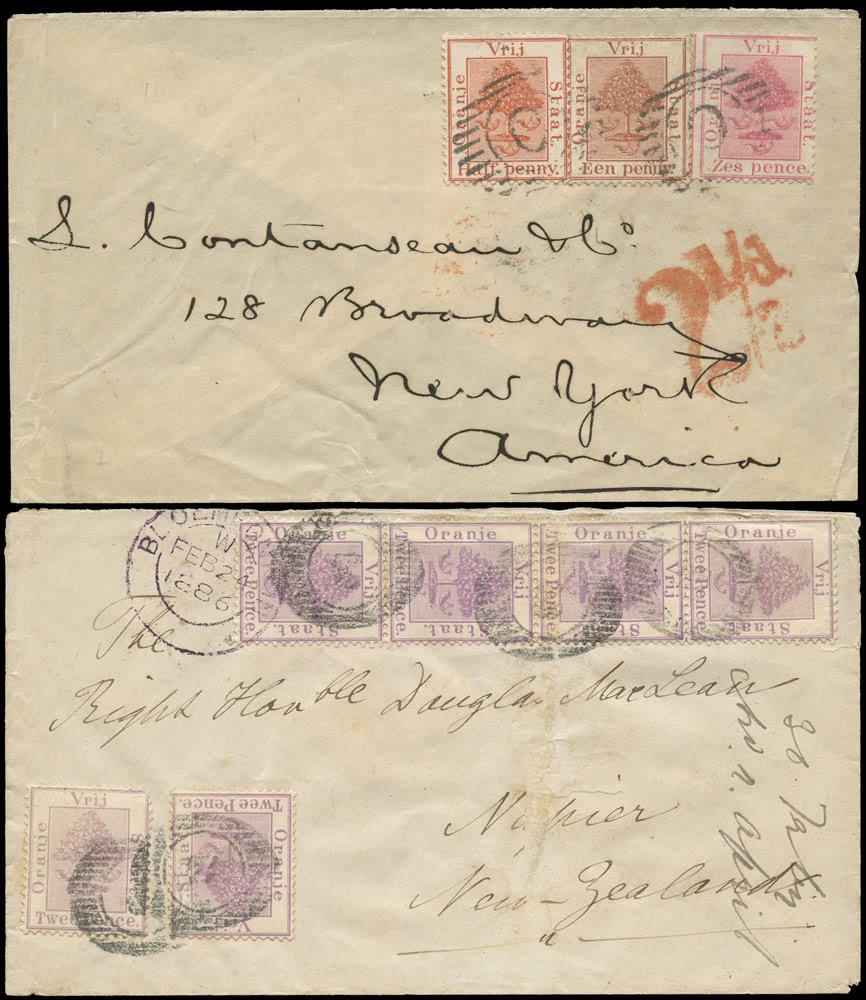 Vrij Vrij Vrij
Oranje Staat. Oranje Staat. Staat.
Half penny. Een penny. Zes pence.
L. Contanseau & Co.
128 Broadway
New York
America
BLOEMFO
W
FEB 24
1886
Oranje Vrij Staat. Twee Pence.
Oranje Vrij Staat. Twee Pence.
Oranje Vrij Staat. Twee Pence.
Oranje Vrij Staat. Twee Pence.
The
Right Honble Douglas MacLean
Napier
New-Zealand
April
Vrij
Oranje
Twee Pence.
Twee Pence.
Oranje
Staat